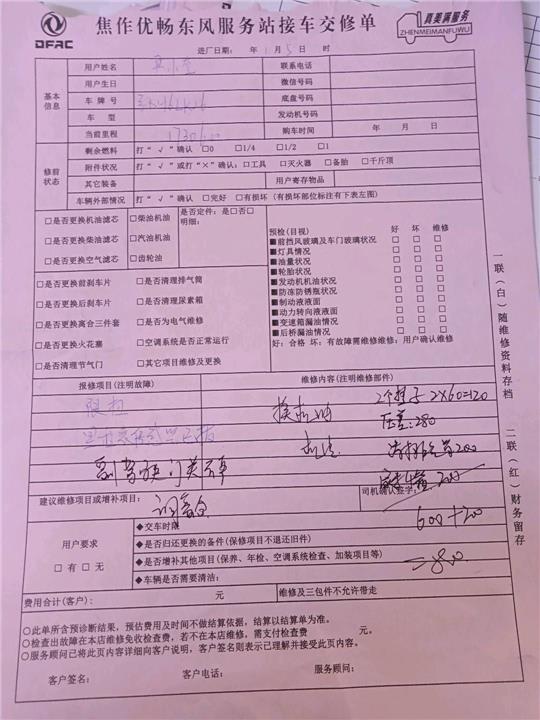 DFAC
焦作优畅东风服务站接车交修单
真美满服务
ZHENMEIMANFUWU
进厂日期： 年 1月 5日 时
基本信息
用户姓名 联系电话
用户生日 微信号码
车牌号 底盘号码
车型 发动机号码
当前里程 购车时间 年 月 日
修前状态
剩余燃料 打“√”确认 □0 □1/4 □1/2 □1
附件状况 打“√”或打“×”确认：□工具 □灭火器 □备胎 □千斤顶
其它装备 用户寄存物品
车辆外部情况 打“√”确认 □完好 □有损坏（有损坏部位标注有下表左图）
□是否更换机油滤芯 □柴油机油
□是否更换柴油滤芯 □汽油机油
□是否更换空气滤芯 □齿轮油
是否定件：是□否□
明细：
□是否更换前刹车片 □是否清理排气筒
□是否更换后刹车片 □是否清理尿素箱
□是否更换离合三件套 □是否为电气维修
□是否更换火花塞 □空调系统是否正常运行
□是否清理节气门 □其它项目维修及更换
预检（目视） 好 坏 维修
■前挡风玻璃及车门玻璃状况 □ □ □
■灯具情况 □ □ □
■油量状况 □ □ □
■轮胎状况 □ □ □
■发动机机油状况 □ □ □
■防冻防锈瓶状况 □ □ □
■制动液液面 □ □ □
■动力转向液液面 □ □ □
■变速箱漏油情况 □ □ □
■后桥漏油情况 □ □ □
好：合格 坏：有故障需维修维修：用户确认维修
报修项目（注明故障） 维修内容（注明维修部件）
2×60=120
换机油 压差：280
200
副驾驶门关不
建议维修项目或增补项目： 司机确认签字：
600+200
=880
用户要求
□有 □无
◆交车时限
◆是否归还更换的备件（保修项目不退还旧件）
◆是否增补其他项目（保养、年检、空调系统检查、加装项目等）
◆车辆是否需要清油：
费用合计（客户）： 元 维修及三包件不允许带走
○此单所含预诊断结果，预估费用及时间不做结算依据，结算以结算单为准。
○检查出故障在本店维修免收检查费，若不在本店维修，需支付检查费 元。
○服务顾问已将此页内容详细向客户说明，客户签名则表示已理解并接受此页内容。
客户签名： 客户电话： 服务顾问：
一联（白）随维修资料存档
二联（红）财务留存